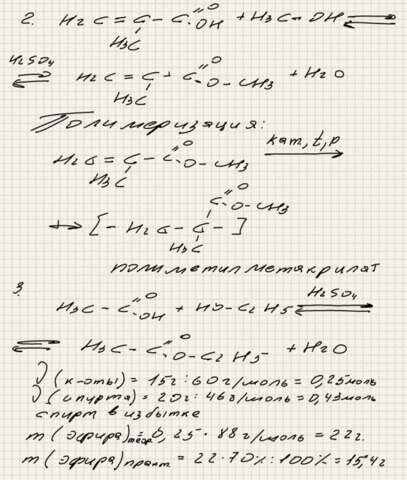 2. H2C=C-C=O OH + H3C-OH ⇌
H3C
H2SO4
⇌ H2C=C-C=O O-CH3 + H2O
H3C
Полимеризация:
H2C=C-C=O O-CH3 кат, t, p →
H3C
C=O O-CH3
→ [-H2C-C-]
H3C
полиметилметакрилат
3.
H3C-C=O OH + HO-C2H5 H2SO4 ⇌
⇌ H3C-C=O O-C2H5 + H2O
ν(к-оты) = 15г : 60г/моль = 0,25моль
ν(спирта) = 20г : 46г/моль = 0,43моль
спирт в избытке
m(эфира)теор. = 0,25 · 88 г/моль = 22г.
m(эфира)практ = 22·70% : 100% = 15,4г